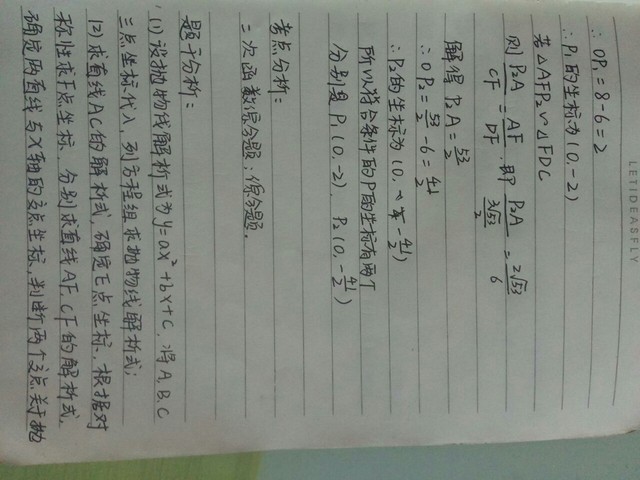 LETIDEASFLY
∴ OP₁=8-6=2
∴ P₁的坐标为(0,-2)
若△AFP₂∽△FDC
则 P₂A/CF = AF/DF, 即 P₂A/(3√53/2) = 2√53/6
解得 P₂A = 53/2
∴ OP₂ = 53/2 - 6 = 41/2
∴ P₂的坐标为(0, -41/2)
所以符合条件的P的坐标有两个
分别是 P₁(0,-2), P₂(0,-41/2)
考点分析:
二次函数综合题;综合题.
题干分析:
(1)设抛物线解析式为y=ax²+bx+c,将A,B,C
三点坐标代入,列方程组求抛物线解析式;
(2)求直线AC的解析式,确定E点坐标,根据对
称性求F点坐标,分别求直线AF,CF的解析式,
确定两直线与x轴的交点坐标,判断两个交点关于抛